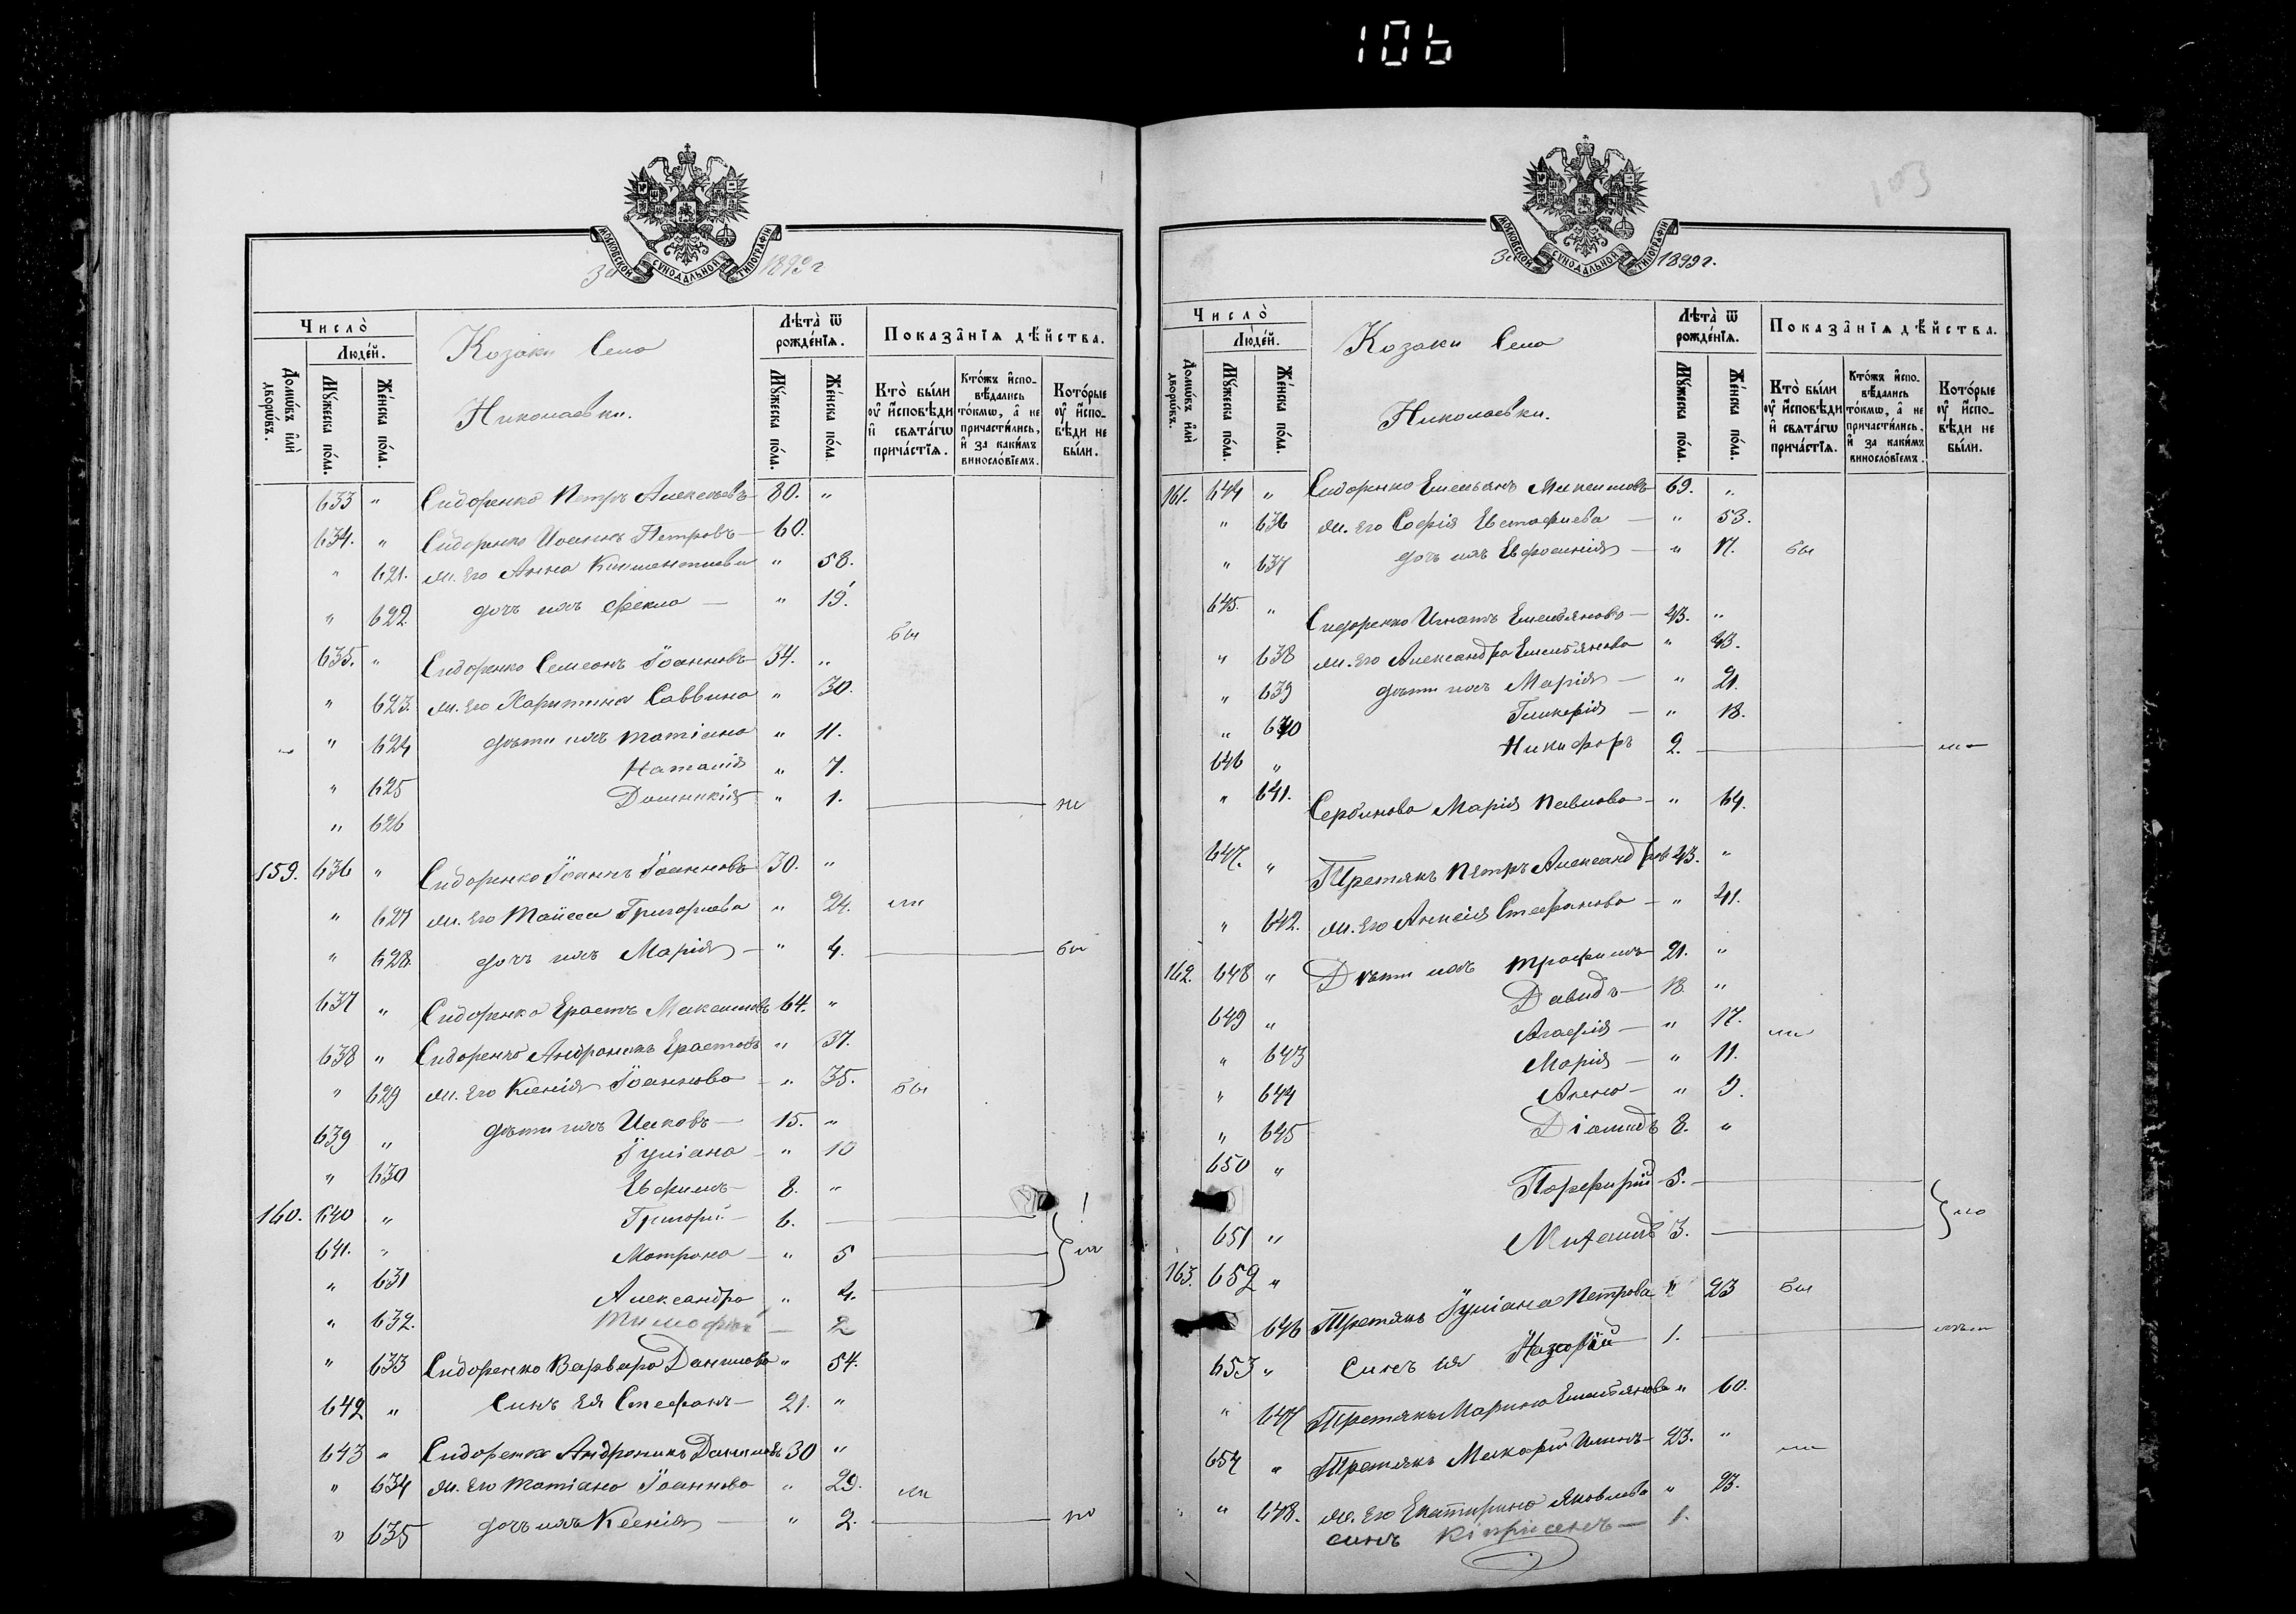 106
103
МОСКОВСКОЙ СѴНОДАЛЬНОЙ ТИПОГРАФІИ
За 1899 г
Число̀
Люде́й.
Домѡ́въ и҆лѝ дворѡ́въ.
Мꙋ́жеска по́ла.
Же́нска по́ла.
Козаки Села
Николаевки.
Лѣ́та ѿ рожде́нїѧ.
Мꙋ́жеска по́ла.
Же́нска по́ла.
Показа̑нїѧ дѣ́йства.
Кто̀ бы́ли ᲂу҆ и҆сповѣ́ди и҆ свѧта́гѡ прича́стїѧ.
Кто́жъ и҆сповѣ́дались то́кмѡ, а҆ не причасти́лись, и҆ за каки́мъ винosло́вїемъ.
Кото́рые ᲂу҆ и҆сповѣ́ди не бы́ли.
633 " Сидоренко Петръ Алексѣевъ 80. "
634. " Сидоренко Иоаннъ Петровъ — 60.
" 621. ж. его Анна Климентиева " 58.
" 622 дочь ихъ Фекла — " 19.
бы
635. " Сидоренко Семеонъ Іоанновъ 34. "
" 623. ж. его Харитина Саввина " 30.
" 624 дѣти ихъ Татіана " 11.
" 625 Наталія " 7.
" 626 Доминикія " 1. — не
159. 636 " Сидоренко Іоаннъ Іоанновъ 30. "
" 627 ж. его Таисса Григориева " 24. ли
" 628. дочь ихъ Марія — " 4. — бы
637 " Сидоренко Ерастъ Максимовъ 64. "
638 " Сидоренко Андроникъ Ерастовъ " 37.
" 629 ж. его Ксенія Іоаннова — " 35. бы
639 " дѣти ихъ Иаковъ — 15. "
" 630 Іуліана — " 10
Евфимъ — 8. "
160. 640 " Григорій — 6. —
641. " Матрона — " 5 — ли
" 631 Александра " 4. —
" 632. Тимофей — 2
" 633 Сидоренко Варвара Данилова " 54.
642 " Синъ ея Стефанъ — 21. "
643 " Сидоренко Андроникъ Даниловъ 30 "
" 634 ж. его Татіана Іоаннова " 29. ли
" 635 дочь ихъ Ксенія — " 2. —
За 1899 г.
Число̀
Люде́й.
Домѡ́въ и҆лѝ дворѡ́въ.
Мꙋ́жеска по́ла.
Же́нска по́ла.
Козаки Села
Николаевки.
Лѣ́та ѿ рожде́нїѧ.
Мꙋ́жеска по́ла.
Же́нска по́ла.
Показа̑нїѧ дѣ́йства.
Кто̀ бы́ли ᲂу҆ и҆сповѣ́ди и҆ свѧта́гѡ прича́стїѧ.
Кто́жъ и҆сповѣ́дались то́кмѡ, а҆ не причасти́лись, и҆ за каки́мъ винosло́вїемъ.
Кото́рые ᲂу҆ и҆сповѣ́ди не бы́ли.
161. 644 " Сидоренко Емельянъ Максимовъ 69. "
" 636 ж. его Софія Евстафиева — " 53.
" 637 дочь ихъ Евфросинія — " 17. бы
645. " Сидоренко Игнатъ Емельяновъ — 43. "
" 638 ж. его Александра Емельянова " 43.
" 639 дѣти ихъ Марія — " 21.
" 640 Гликерія — " 18.
646 " Никифоръ 2. —
" 641. Сербинова Марія Павлова — " 64.
647. " Третякъ Петръ Александровъ 43. "
" 642. ж. его Анисія Стефанова — " 41.
162. 648 " Дѣти ихъ Трофимъ 21. "
649 " Давидъ — 18 "
" 643 Агафія — " 17. ли
" 644 Марія — " 11.
" 645 Анна — " 9.
650 " Діомидъ 8. "
651 " Порфирій 5. —
163. 652 " Михаилъ 3. —
646 Третякъ Іуліана Петрова " 23 бы
653 " Синъ ея Назарій 1. —
" 647 Третякъ Марина Емельянова " 60.
654 " Третякъ Макарій Илиинъ — 23. " ли
" 648. ж. его Екатирина Яковлева " 23.
синъ Кіпріанъ — 1.